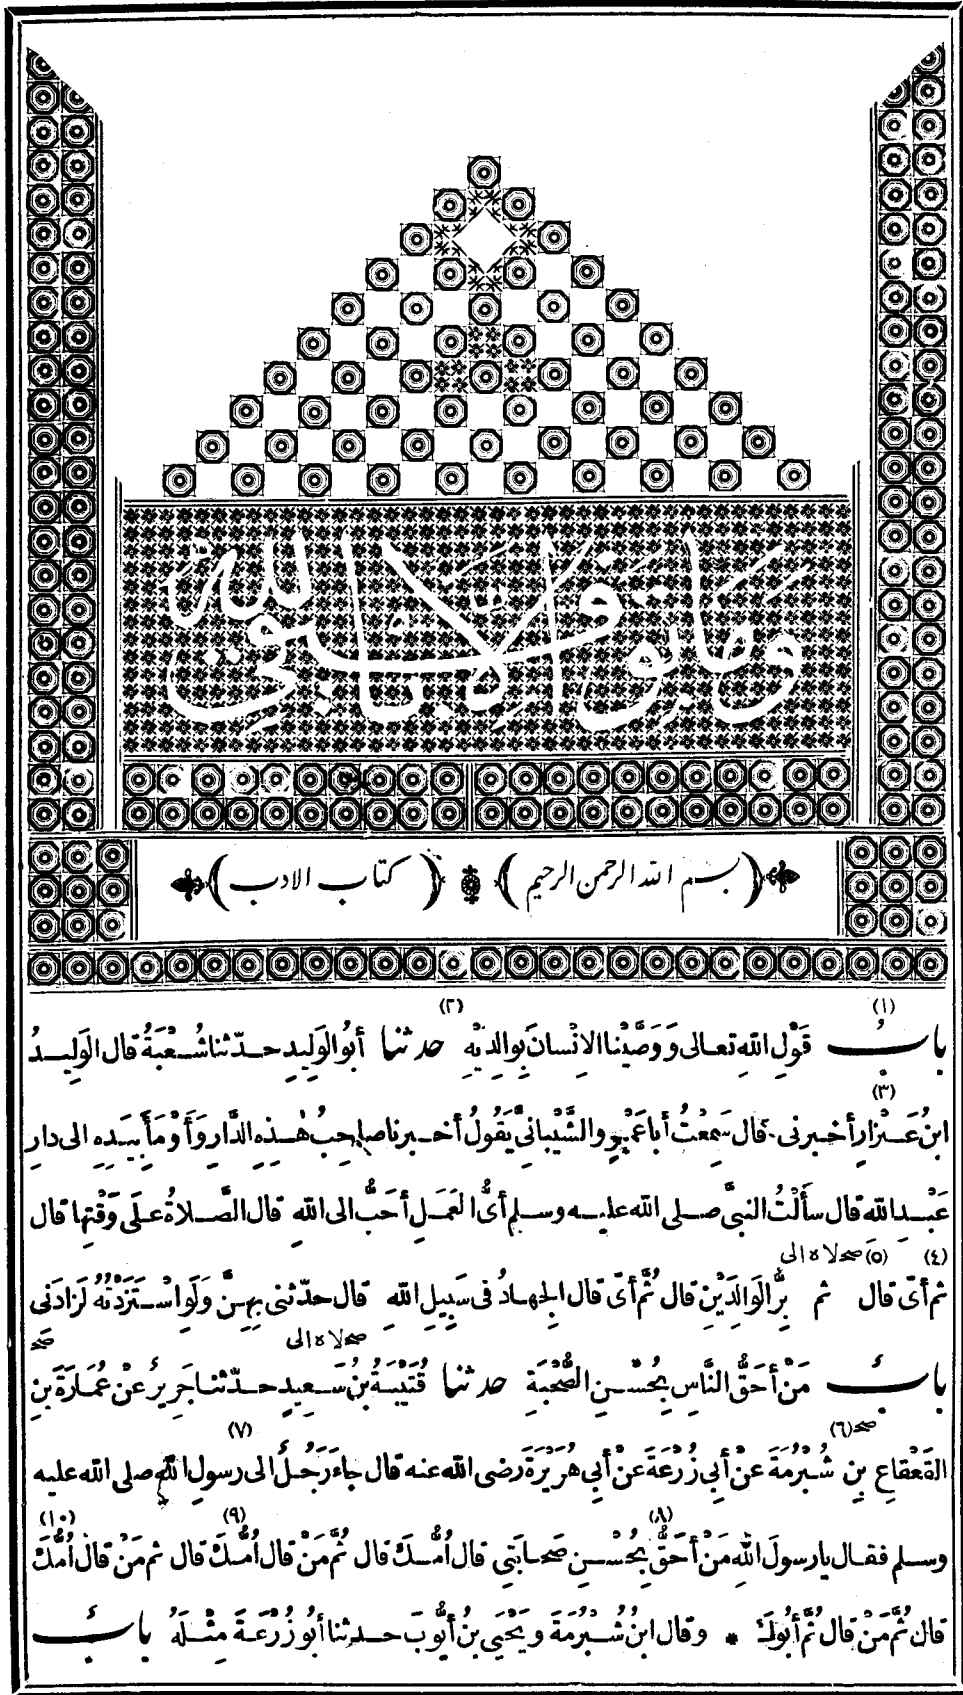 وما توفيقي الا بالله
﴿بسم الله الرحمن الرحيم﴾ ﴿كتاب الادب﴾
(١) (٢)
بابُ قَوْلِ اللهِ تعالى وَوَصَّيْنا الانْسانَ بِوالِدَيْهِ حدثنا أبُو الوَلِيدِ حدّثنا شُعْبَةُ قال الوَلِيدُ
(٣)
ابنُ عَيْزارٍ أخبرنى قال سَمِعْتُ أباعَمْرٍو الشَّيْبانِيَّ يَقُولُ أخبرنا صاحِبُ هٰذِهِ الدَّارِ وَأَوْمَأَ بِيَدِهِ الى دارِ
عَبْدِ اللهِ قال سأَلْتُ النبىَّ صلى الله عليه وسلم أىُّ العَمَلِ أحَبُّ الى اللهِ قال الصَّلاةُ علَى وَقْتِها قال
(٤) (٥) صح لا ه الى
ثم أىّ قال ثم بِرُّ الوَالِدَيْنِ قال ثُمَّ أىّ قال الجِهادُ فى سَبِيلِ اللهِ قال حدّثنى بِهِنَّ ولَوِ اسْتَزَدْتُهُ لَزادَنى
صح لا ه الى صح
بابُ مَنْ أحَقُّ النَّاسِ بِحُسْنِ الصُّحْبَةِ حدثنا قُتَيْبَةُ بنُ سَعِيدٍ حدّثنا جَرِيرٌ عَنْ عُمَارَةَ بنِ
صح (٦) (٧)
القَعْقاعِ بنِ شُبْرُمَةَ عَنْ أبِى زُرْعَةَ عَنْ أبِى هُرَيْرَةَ رضى الله عنه قال جاءَ رَجُلٌ الى رسولِ اللهِ صلى الله عليه
(٨) (٩) (١٠)
وسلم فقال يارسولَ اللهِ مَنْ أحَقُّ بِحُسْنِ صَحابَتِى قال أُمُّكَ قال ثُمَّ مَنْ قال أُمُّكَ قال ثم مَنْ قال أُمُّكَ
قال ثُمَّ مَنْ قال ثُمَّ أبُوكَ * وقال ابنُ شُبْرُمَةَ ويَحْيَى بنُ أيُّوبَ حدثنا أبُو زُرْعَةَ مِثْلَهُ بابٌ